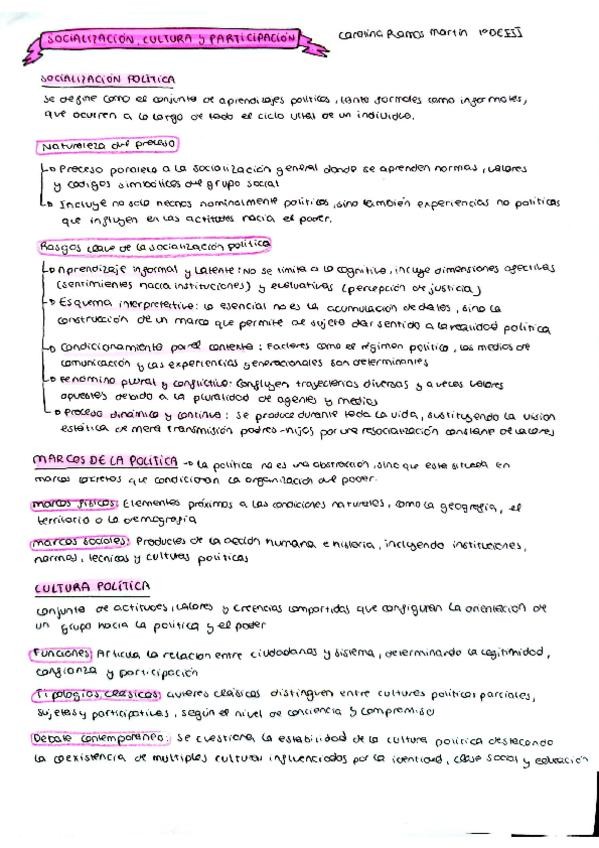 SOCIALIZACIÓN, CULTURA Y PARTICIPACIÓN
Carolina Ramos Martín 1º DE
SOCIALIZACIÓN POLÍTICA
Se define como el conjunto de aprendizajes políticos, tanto formales como informales,
que ocurren a lo largo de todo el ciclo vital de un individuo.
Naturaleza del proceso
Proceso paralelo a la socialización general donde se aprenden normas, valores
y códigos simbólicos del grupo social
Incluye no solo hechos nominalmente políticos, sino también experiencias no políticas
que influyen en las actitudes hacia el poder.
Rasgos clave de la socialización política
Aprendizaje informal y latente: No se limita a lo cognitivo, incluye dimensiones afectivas
(sentimientos hacia instituciones) y evaluativas (percepción de justicia)
Esquema interpretativo: lo esencial no es la acumulación de datos, sino la
construcción de un marco que permite al sujeto dar sentido a la realidad política
Condicionamiento por el contexto: Factores como el régimen político, los medios de
comunicación y las experiencias generacionales son determinantes
Fenómino plural y conflictivo: Confluyen trayectorias diversas y a veces valores
opuestos debido a la pluralidad de agentes y medios
Proceso dinámico y continuo: se produce durante toda la vida, sustituyendo la visión
estática de mera transmisión padres-hijos por una resocialización constante de valores
MARCOS DE LA POLÍTICA → La política no es una abstracción, sino que está situada en
marcos concretos que condicionan la organización del poder.
marcos físicos: Elementos próximos a las condiciones naturales, como la geografía, el
territorio o la demografía
marcos sociales: Productos de la acción humana e historia, incluyendo instituciones,
normas, técnicas y culturas políticas
CULTURA POLÍTICA
Conjunto de actitudes, valores y creencias compartidas que configuran la orientación de
un grupo hacia la política y el poder
Funciones: Articula la relación entre ciudadanos y sistema, determinando la legitimidad,
confianza y participación
Tipologías clásicas: autores clásicos distinguen entre culturas políticas parciales,
sujetas y participativas, según el nivel de conciencia y compromiso
Debate contemporáneo: Se cuestiona la estabilidad de la cultura política destacando
la coexistencia de múltiples culturas influenciadas por la identidad, clase social y educación